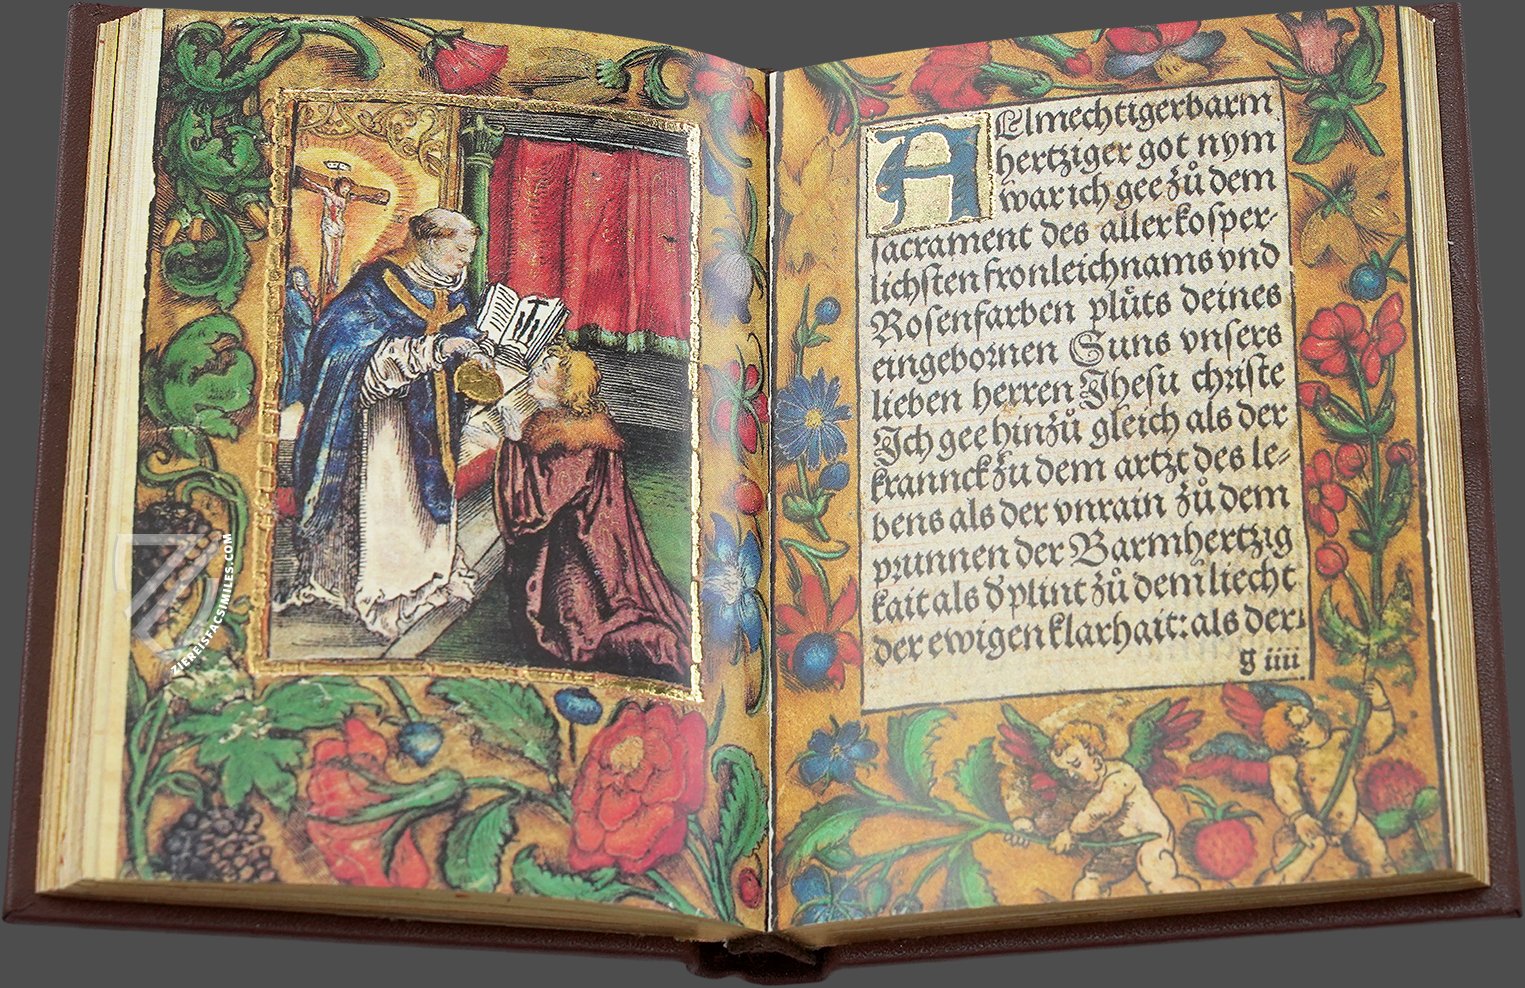 ZIEREISFACSIMILES.COM
Almechtiger barm
hertziger got nym
war ich gee zů dem
sacrament des allerkosper⸗
lichsten fronleichnams vnd
Rosenfarben plůts deines
eingebornen Suns vnsers
lieben herren Jhesu christe
Ich gee hinzů gleich als der
krannck zu dem artzt des le⸗
bens als der vnrain zů dem
prunnen der Barmhertzig
kait als d̕ plint zů dem liecht
der ewigen klarhait: als der
g iiii